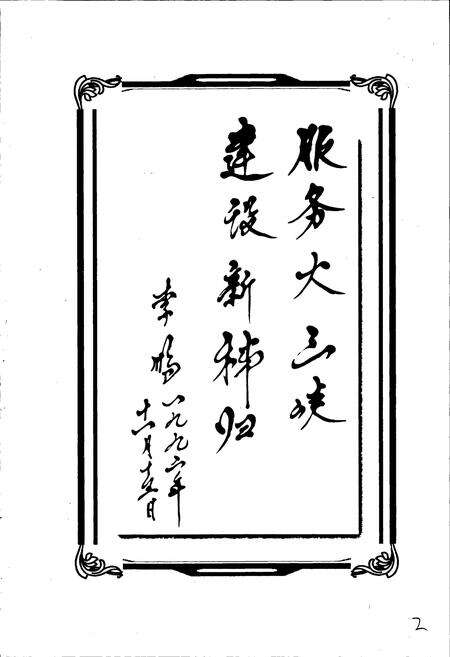 服务大三峡
建设新秭归
李鹏 一九九二年
十一月十五日
2